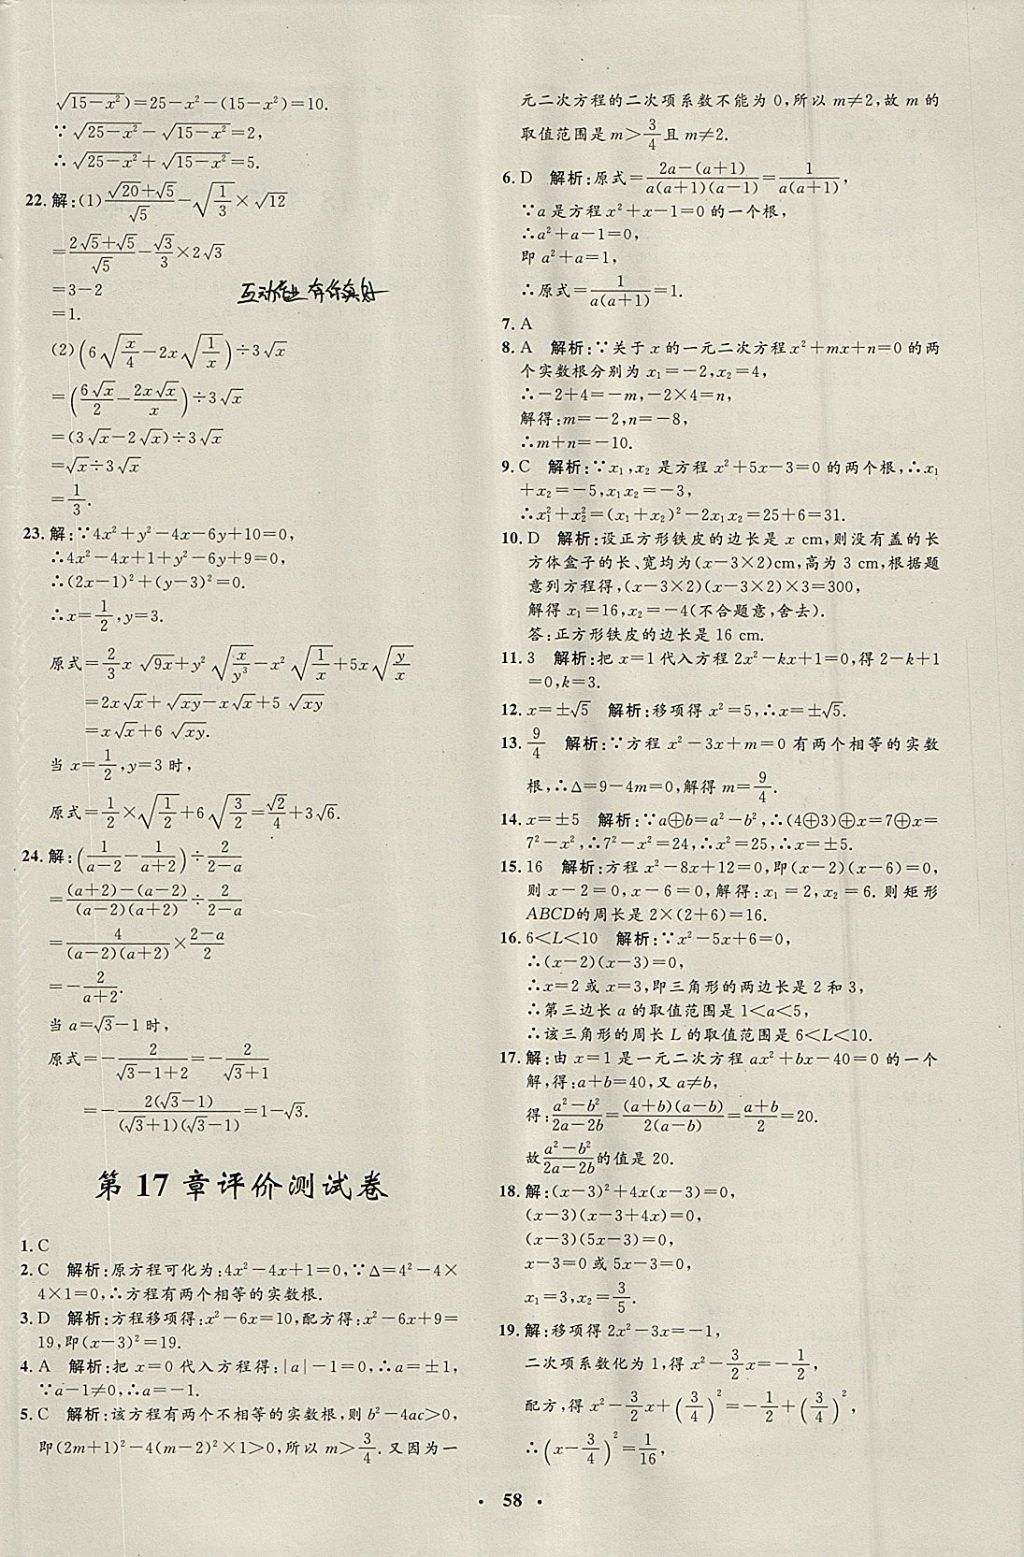 √(15−x²))=25−x²−(15−x²)=10.
∵√(25−x²)−√(15−x²)=2,
∴√(25−x²)+√(15−x²)=5.
22.解:(1)(√20+√5)/√5−√(1/3)×√12
=(2√5+√5)/√5−(√3/3)×2√3
=3−2
=1.
(2)(6√(x/4)−2x√(1/x))÷3√x
=(6√x/2−2x√x/x)÷3√x
=(3√x−2√x)÷3√x
=√x÷3√x
=1/3.
23.解:∵4x²+y²−4x−6y+10=0,
∴4x²−4x+1+y²−6y+9=0,
∴(2x−1)²+(y−3)²=0.
∴x=1/2,y=3.
原式=(2/3)x√(9x)+y²√(x/y³)−x²√(1/x)+5x√(y/x)
=2x√x+√(xy)−x√x+5√(xy)
=x√x+6√(xy).
当x=1/2,y=3时,
原式=1/2×√(1/2)+6√(3/2)=√2/4+3√6.
24.解:(1/(a−2)−1/(a+2))÷2/(2−a)
=((a+2)−(a−2))/((a−2)(a+2))÷2/(2−a)
=4/((a−2)(a+2))×(2−a)/2
=−2/(a+2).
当a=√3−1时,
原式=−2/(√3−1+2)=−2/(√3+1)
=−2(√3−1)/((√3+1)(√3−1))=1−√3.
第17章评价测试卷
1.C
2.C 解析:原方程可化为:4x²−4x+1=0,∵Δ=4²−4×
4×1=0,∴方程有两个相等的实数根.
3.D 解析:方程移项得:x²−6x=10,配方得:x²−6x+9=
19,即(x−3)²=19.
4.A 解析:把x=0代入方程得:|a|−1=0,∴a=±1,
∵a−1≠0,∴a=−1.
5.C 解析:该方程有两个不相等的实数根,则b²−4ac>0,
即(2m+1)²−4(m−2)²×1>0,所以m>3/4.又因为一
元二次方程的二次项系数不能为0,所以m≠2,故m的
取值范围是m>3/4且m≠2.
6.D 解析:原式=(2a−(a+1))/(a(a+1)(a−1))=1/(a(a+1)),
∵a是方程x²+x−1=0的一个根,
∴a²+a−1=0,
即a²+a=1,
∴原式=1/(a(a+1))=1.
7.A
8.A 解析:∵关于x的一元二次方程x²+mx+n=0的两
个实数根分别为x₁=−2,x₂=4,
∴−2+4=−m,−2×4=n,
解得:m=−2,n=−8,
∴m+n=−10.
9.C 解析:∵x₁,x₂是方程x²+5x−3=0的两个根,∴x₁
+x₂=−5,x₁x₂=−3,
∴x₁²+x₂²=(x₁+x₂)²−2x₁x₂=25+6=31.
10.D 解析:设正方形铁皮的边长是x cm,则没有盖的长
方体盒子的长、宽均为(x−3×2)cm,高为3 cm,根据题
意列方程得,(x−3×2)(x−3×2)×3=300,
解得x₁=16,x₂=−4(不合题意,舍去).
答:正方形铁皮的边长是16 cm.
11.3 解析:把x=1代入方程2x²−kx+1=0,得2−k+1
=0,k=3.
12.x=±√5 解析:移项得x²=5,∴x=±√5.
13.9/4 解析:∵方程x²−3x+m=0有两个相等的实数
根,∴Δ=9−4m=0,解得m=9/4.
14.x=±5 解析:∵a⊕b=a²−b²,∴(4⊕3)⊕x=7⊕x=
7²−x²,∴7²−x²=24,∴x²=25,∴x=±5.
15.16 解析:方程x²−8x+12=0,即(x−2)(x−6)=0,
则x−2=0,x−6=0,解得:x₁=2,x₂=6.则矩形
ABCD的周长是2×(2+6)=16.
16.6<L<10 解析:∵x²−5x+6=0,
∴(x−2)(x−3)=0,
∴x=2或x=3,即三角形的两边长是2和3,
∴第三边长a的取值范围是1<a<5,
∴该三角形的周长L的取值范围是6<L<10.
17.解:由x=1是一元二次方程ax²+bx−40=0的一个
解,得:a+b=40,又a≠b,
得:(a²−b²)/(2a−2b)=((a+b)(a−b))/(2(a−b))=(a+b)/2=20.
故(a²−b²)/(2a−2b)的值是20.
18.解:(x−3)²+4x(x−3)=0,
(x−3)(x−3+4x)=0,
(x−3)(5x−3)=0,
x−3=0或5x−3=0,
x₁=3,x₂=3/5.
19.解:移项得2x²−3x=−1,
二次项系数化为1,得x²−(3/2)x=−1/2,
配方,得x²−(3/2)x+(3/4)²=−1/2+(3/4)²,
∴(x−3/4)²=1/16,
• 58 •